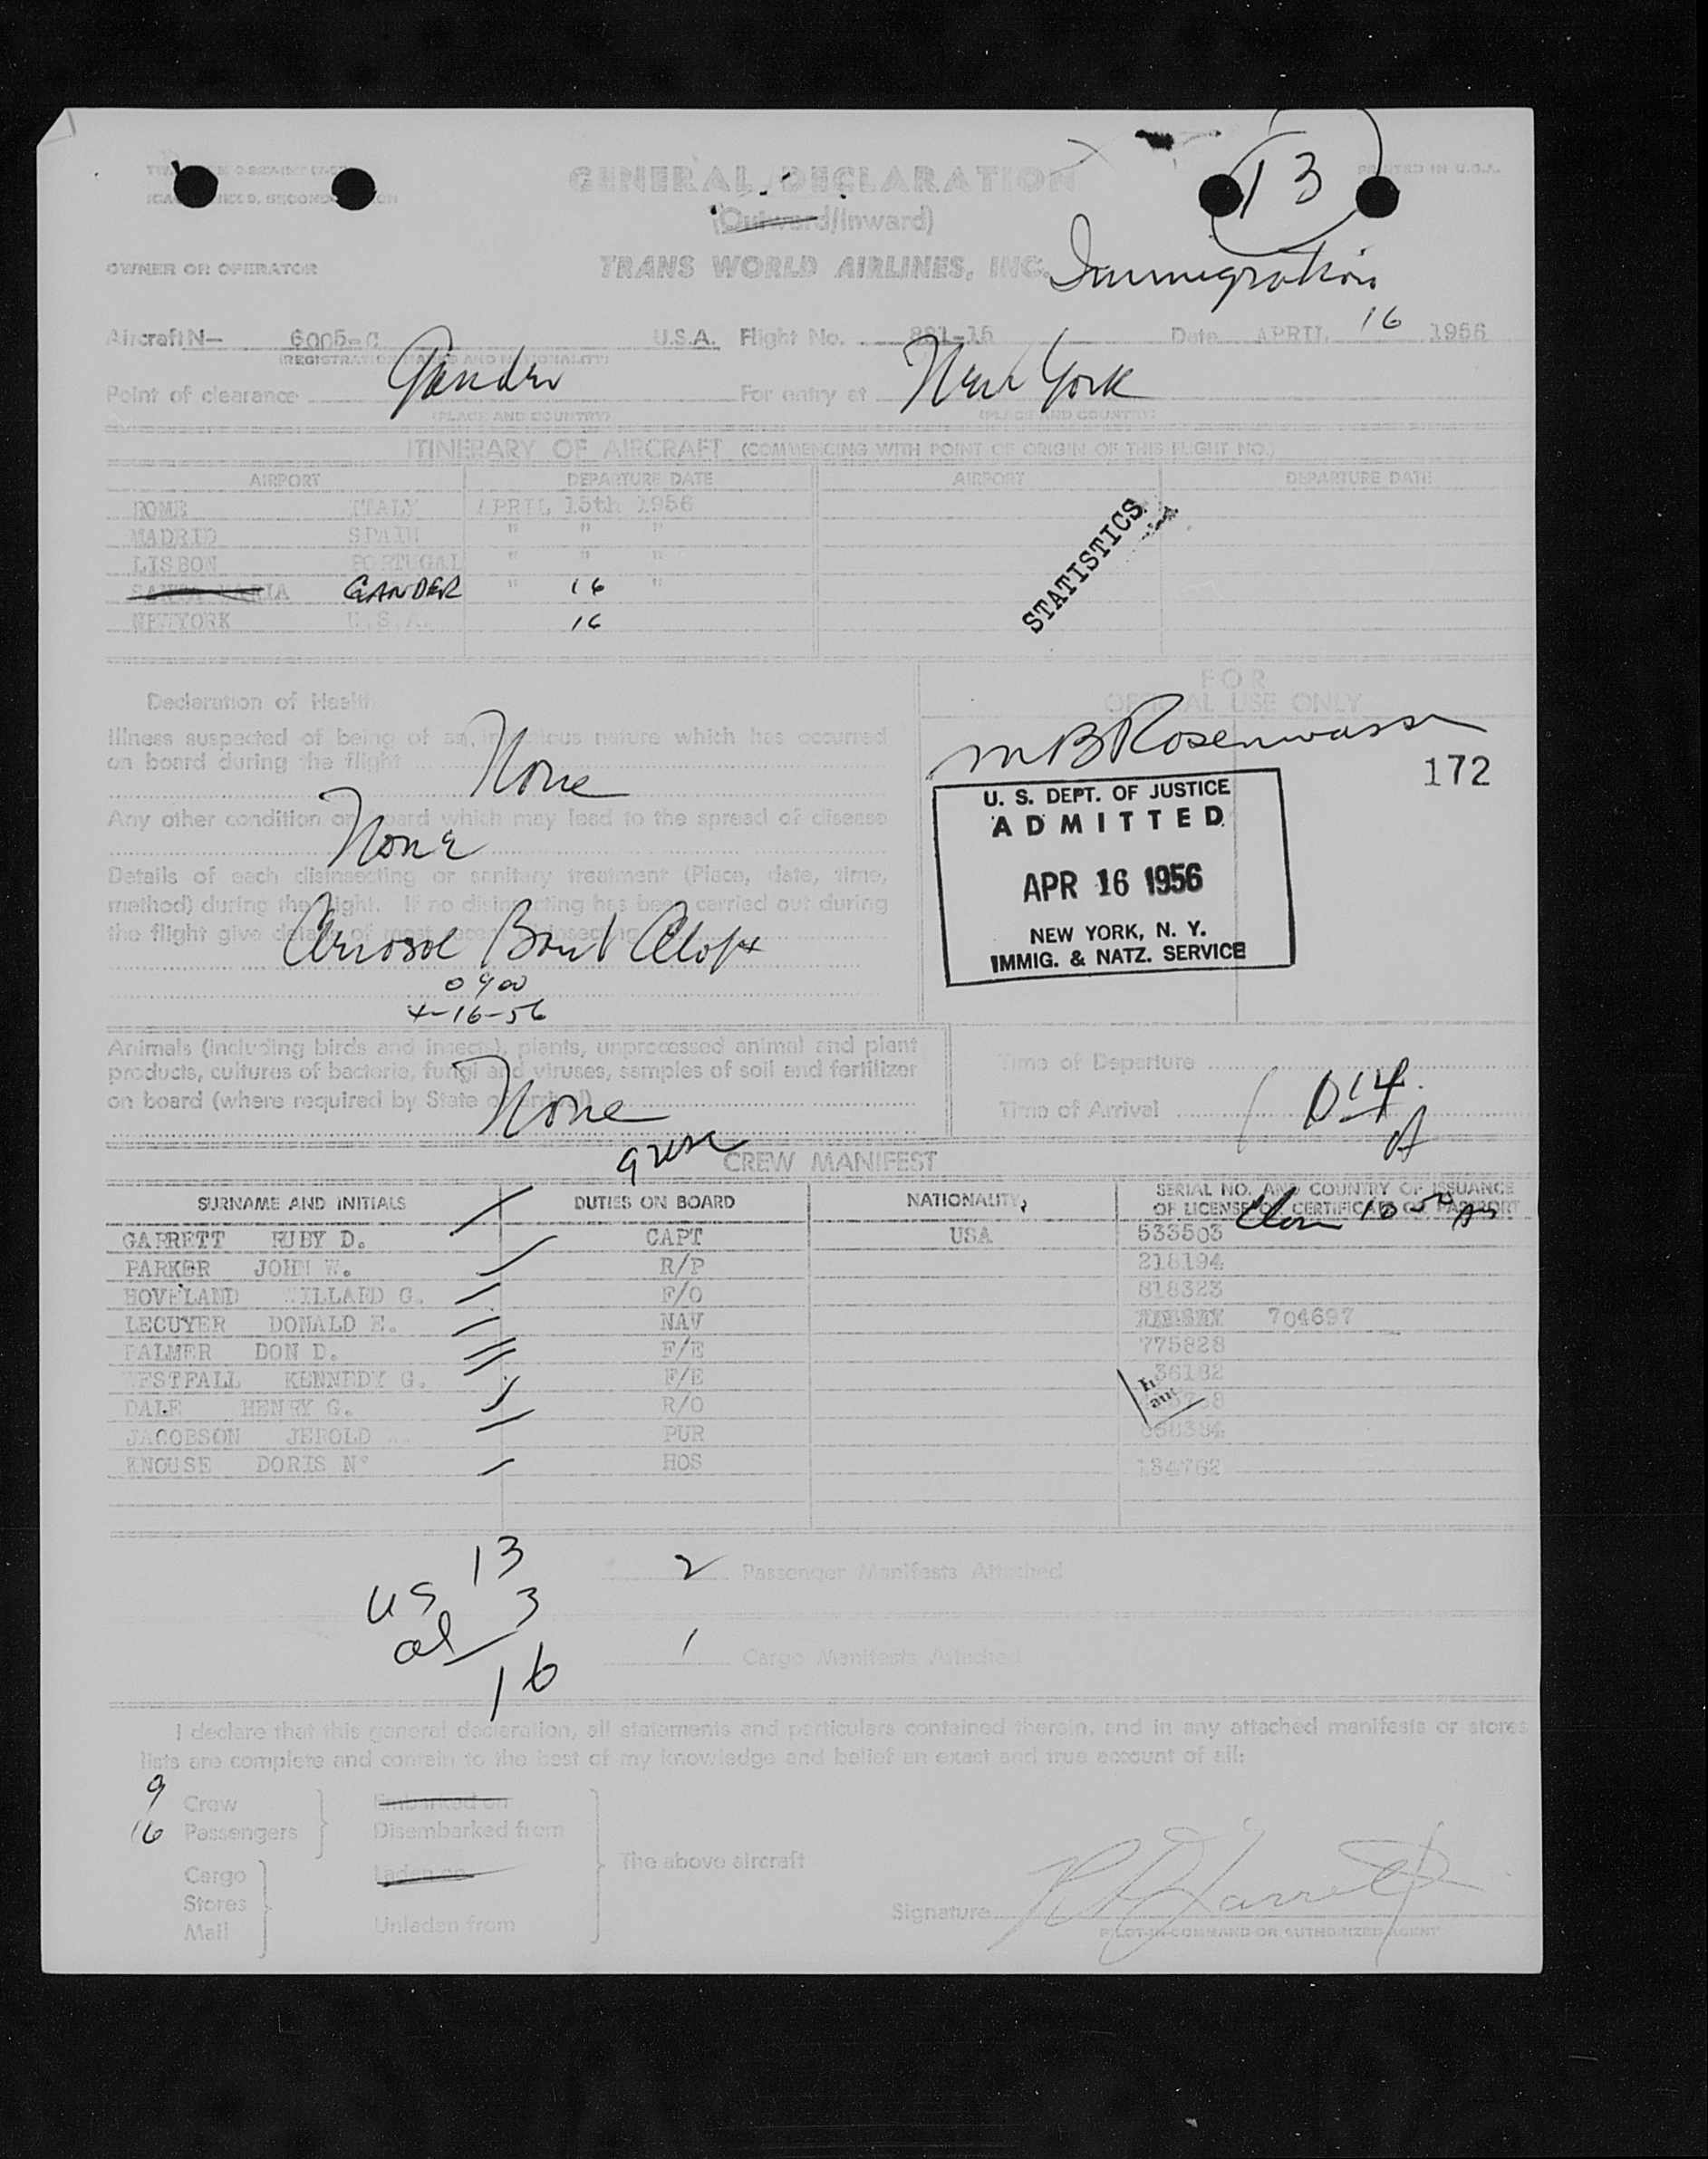 PRINTED IN U.S.A.
13
GENERAL DECLARATION
(Outward/Inward)
OWNER OR OPERATOR TRANS WORLD AIRLINES, INC. Immigration
Aircraft N— 6005-C U.S.A. Flight No. 881-15 Date APRIL 16 1956
(REGISTRATION MARKS AND NATIONALITY)
Point of clearance Gander For entry at New York
(PLACE AND COUNTRY) (PLACE AND COUNTRY)
ITINERARY OF AIRCRAFT (COMMENCING WITH POINT OF ORIGIN OF THIS FLIGHT NO.)
AIRPORT DEPARTURE DATE AIRPORT DEPARTURE DATE
ROME ITALY APRIL 15th 1956
MADRID SPAIN " " "
LISBON PORTUGAL " " "
SANTA MARIA GANDER " 16 "
NEWYORK U.S.A. 16
STATISTICS
FOR
OFFICIAL USE ONLY
Declaration of Health
Illness suspected of being of an infectious nature which has occurred
on board during the flight
None
Any other condition on board which may lead to the spread of disease
None
Details of each disinsecting or sanitary treatment (Place, date, time,
method) during the flight. If no disinsecting has been carried out during
the flight give details of most recent disinsecting
Aerosol Bomb Aloft
0900
4-16-56
M B Rosenwasser
172
U. S. DEPT. OF JUSTICE
ADMITTED
APR 16 1956
NEW YORK, N. Y.
IMMIG. & NATZ. SERVICE
Animals (including birds and insects), plants, unprocessed animal and plant
products, cultures of bacteria, fungi and viruses, samples of soil and fertilizer
on board (where required by State of arrival)
None
Time of Departure
Time of Arrival 1014 A
CREW MANIFEST
SURNAME AND INITIALS DUTIES ON BOARD NATIONALITY SERIAL NO. AND COUNTRY OF ISSUANCE
OF LICENSE OR CERTIFICATE OR PASSPORT
GARRETT RUBY D. CAPT USA 533503
PARKER JOHN W. R/P 218194
HOVELAND WILLARD G. F/O 818323
LECUYER DONALD E. NAV 704697
PALMER DON D. F/E 775828
WESTFALL KENNEDY G. F/E 36182
DALE HENRY G. R/O
JACOBSON JEROLD PUR
KNOUSE DORIS N. HOS 184762
US 13
al 3
16
2 Passenger Manifests Attached
1 Cargo Manifests Attached
I declare that this general declaration, all statements and particulars contained therein, and in any attached manifests or stores
lists are complete and contain to the best of my knowledge and belief an exact and true account of all:
9 Crew Embarked on
16 Passengers Disembarked from
The above aircraft
Cargo Laden on
Stores
Mail Unladen from
Signature R D Garrett
PILOT-IN-COMMAND OR AUTHORIZED AGENT